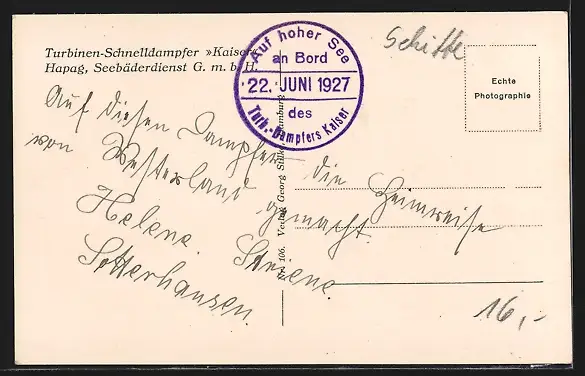 Turbinen-Schnelldampfer »Kaiser«
Hapag, Seebäderdienst G. m. b. H.
Auf hoher See
an Bord
22. JUNI 1927
des
Turb.-Dampfers Kaiser
Schiffe
Echte
Photographie
Auf diesen Dampfer die Heimreise
von Westerland gemacht.
Helene
Sotterhausen.
106. Verlag Georg Stilke, Hamburg
16,-